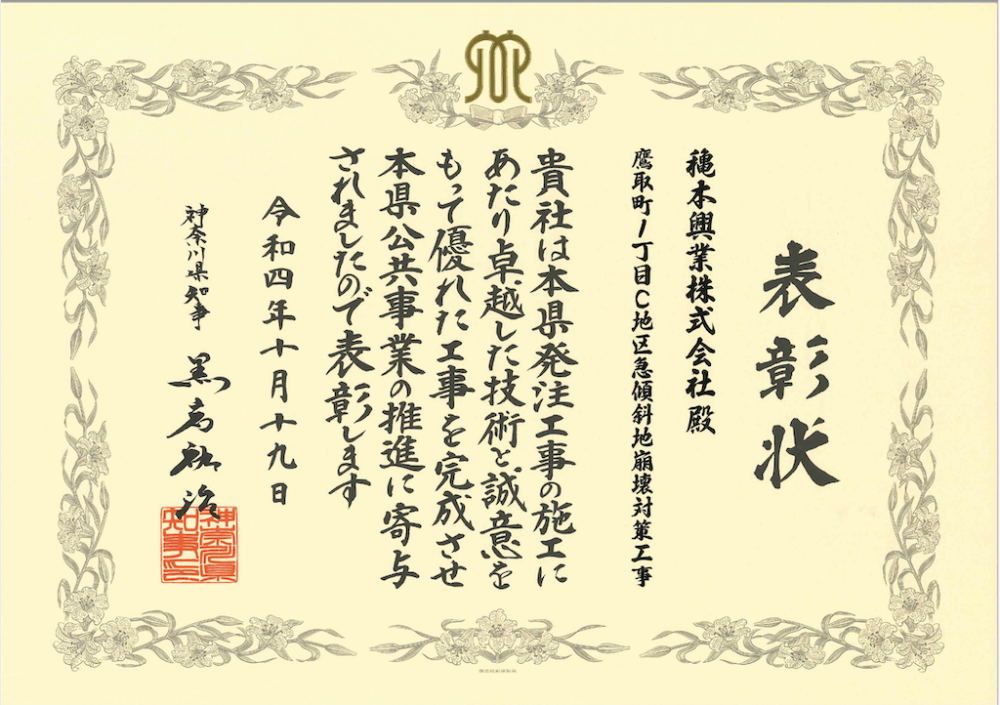 表彰状
穐本興業株式会社殿
鷹取町1丁目C地区急傾斜地崩壊対策工事
貴社は本県発注工事の施工に
あたり卓越した技術と誠意を
もって優れた工事を完成させ
本県公共事業の推進に寄与
されましたので表彰します
令和四年十月十九日
神奈川県知事
黒岩祐治
神奈川県
知事之印